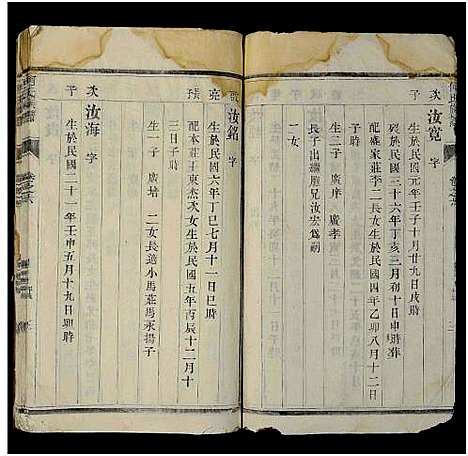 次 汝寛 字
子
生於民國元年壬子十月廿九日戌時
歿於民國三十六年丁亥三月初十日申時葬
配盛家莊李二長女生於民國四年乙卯八月十二日
子時
生二子 廣序 廣孝
長子出繼胞兄汝宏爲嗣
一女
汝銘 字
亮
生於民國六年丁巳七月十一日巳時
配本莊王東杰次女生於民國五年丙辰十二月十
三日子時
生一子 廣培 二女長適小馬莊馬永揚子
次 汝海 字
子
生於民國二十一年壬申五月十九日卯時